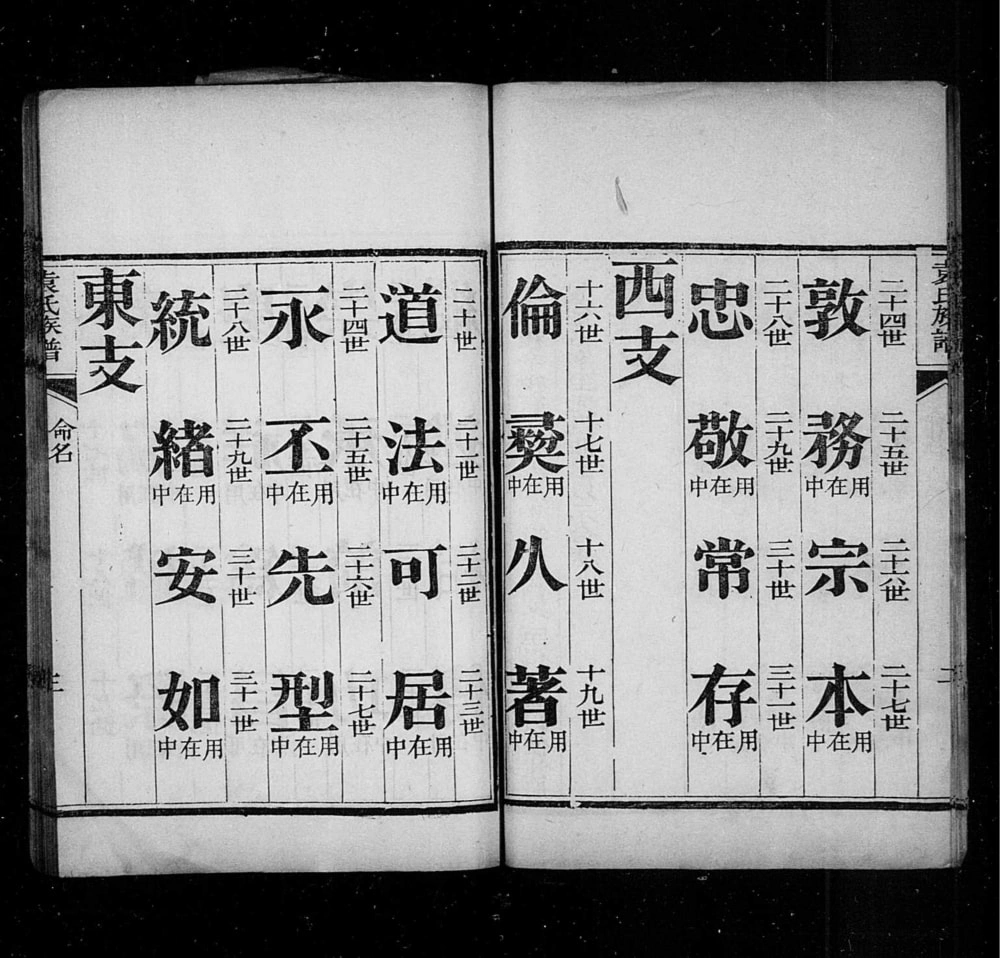 袁氏族譜
二
二十四世 二十五世 二十六世 二十七世
敦 務用在中 宗 本用在中
二十八世 二十九世 三十世 三十一世
忠 敬用在中 常 存用在中
西支
十六世 十七世 十八世 十九世
倫 彞用在中 久 著用在中
二十世 二十一世 二十二世 二十三世
道 法用在中 可 居用在中
二十四世 二十五世 二十六世 二十七世
永 丕用在中 先 型用在中
二十八世 二十九世 三十世 三十一世
統 緒用在中 安 如用在中
東支
袁氏族譜 命名 三